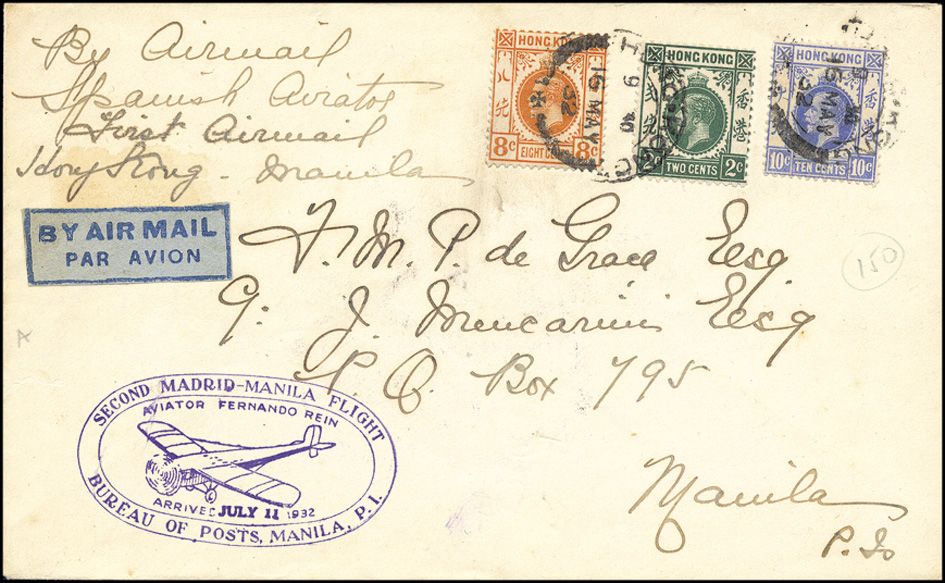 By Airmail
Spanish Aviator
First Airmail
Hong Kong - Manila
HONG KONG
8c 8c
EIGHT
HONG KONG
2c 2c
TWO CENTS
HONG KONG
香港
10c 10c
TEN CENTS
15 MAY
32
BY AIR MAIL
PAR AVION
F. M. P. de Grace Esq
J. Mencarini Esq
P.O. Box 795
Manila
P. Is
150
SECOND MADRID-MANILA FLIGHT
AVIATOR FERNANDO REIN
ARRIVED JULY 11 1932
BUREAU OF POSTS, MANILA, P. I.